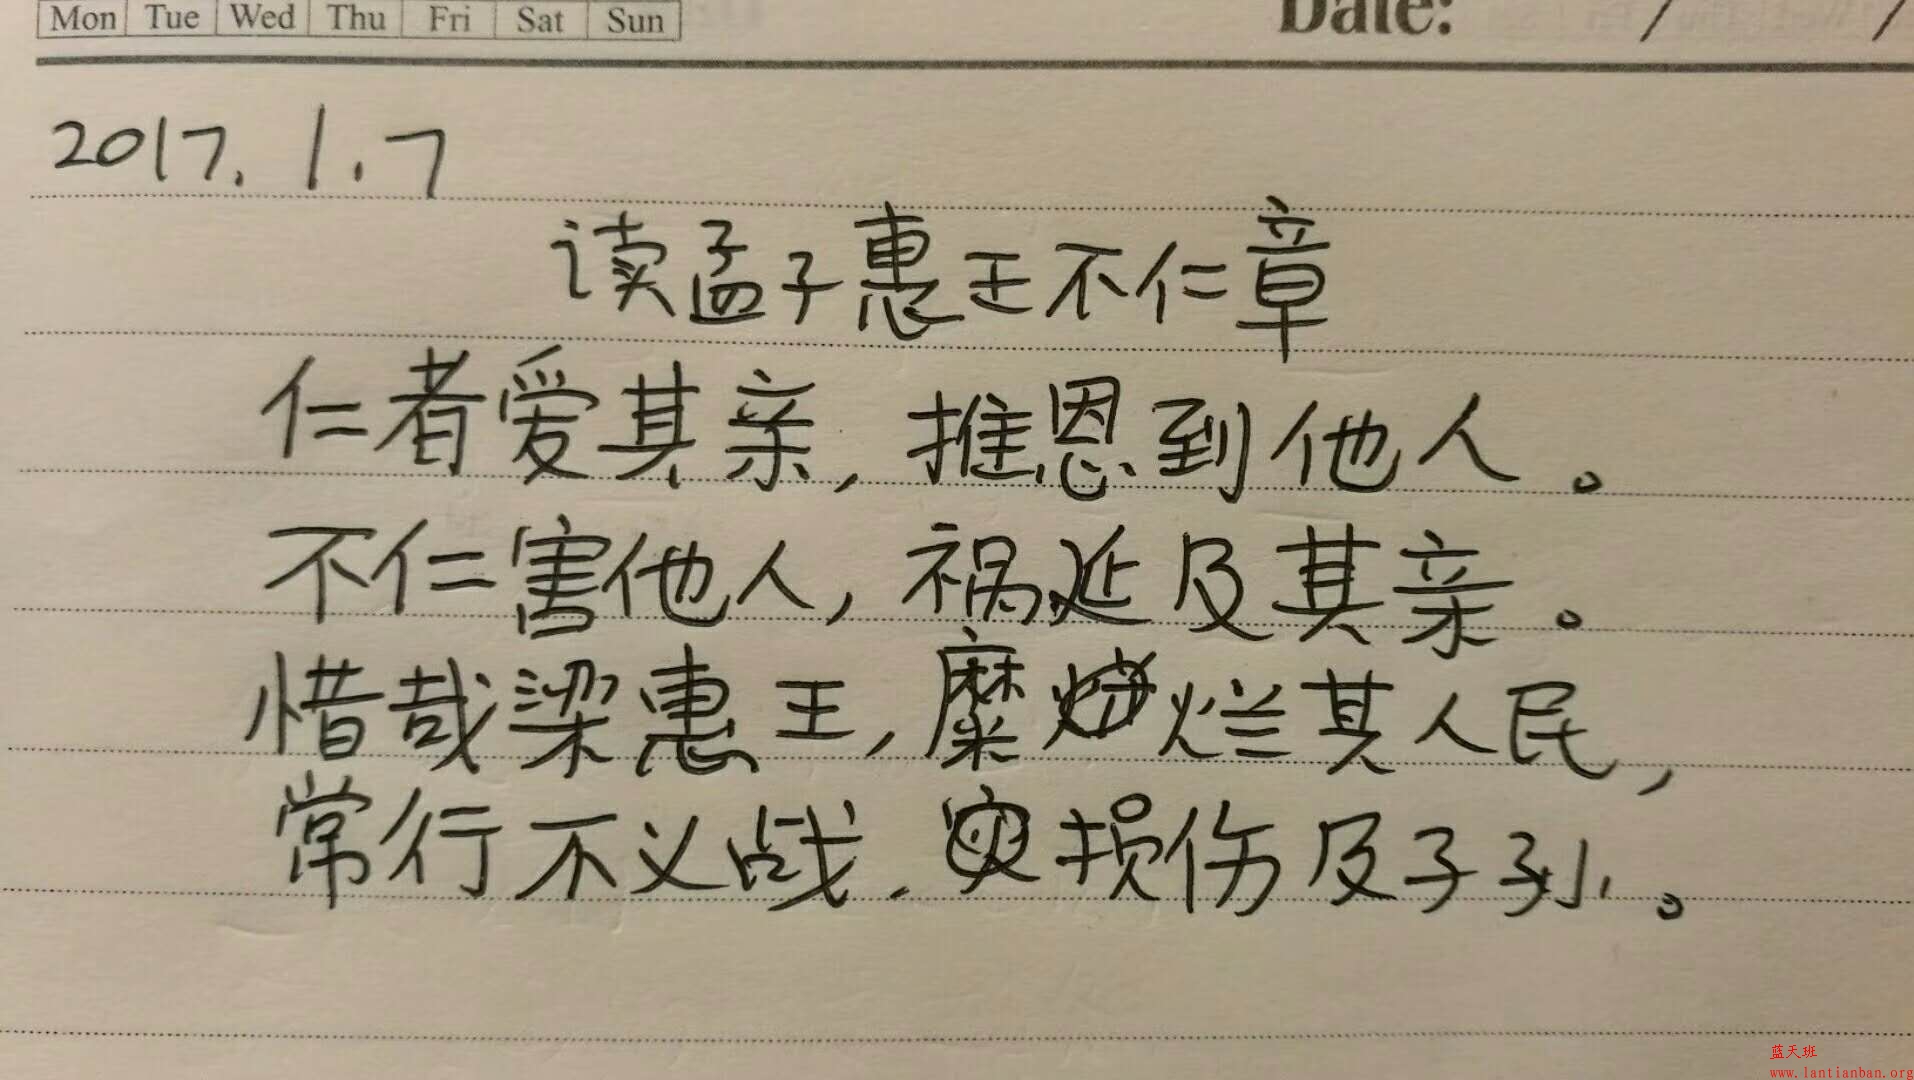 Mon Tue Wed Thu Fri Sat Sun Date: / /
2017.1.7
读孟子惠王不仁章
仁者爱其亲,推恩到他人。
不仁害他人,祸延及其亲。
惜哉梁惠王,糜烂其人民,
常行不义战.损伤及子孙。
蓝天班
www.lantianban.org